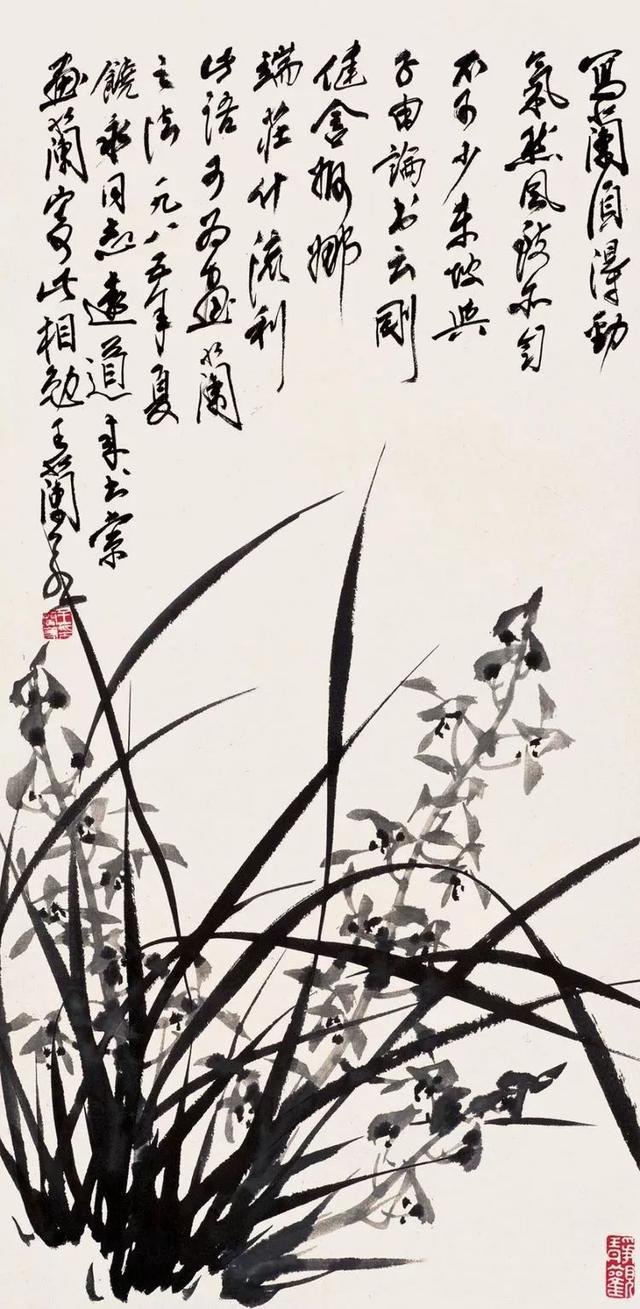 寫蘭須得勁
氣然風致亦自
不可少東坡與
子由論书云剛
健含婀娜
端莊什流利
此語可为畫蘭
之法一九八五年夏
饒同志遠道来书索
畫蘭寫此相勉王蘭若